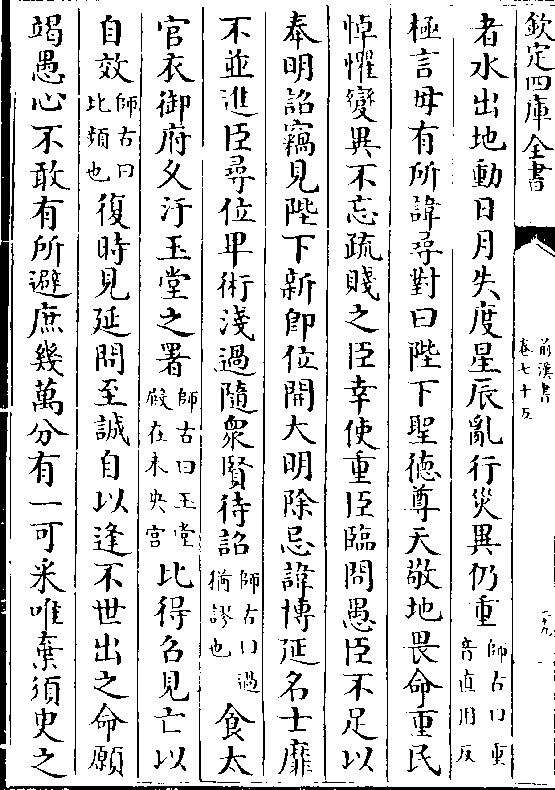 欽定四庫全書
前漢書
卷七十五
者水出地動日月失度星辰亂行災異仍重師古曰重音直用反
極言毋有所諱尋對曰陛下聖德尊天敬地畏命重民
悼懼變異不忘疏賤之臣幸使重臣臨問愚臣不足以
奉明詔竊見陛下新即位開大明除忌諱博延名士靡
不並進臣尋位卑術淺過隨衆賢待詔師古曰過猶謬也食太
官衣御府久汙玉堂之署師古曰玉堂殿在未央宫比得召見亡以
自效師古曰比頻也復時見延問至誠自以逢不世出之命願
竭愚心不敢有所避庶幾萬分有一可采唯棄須臾之